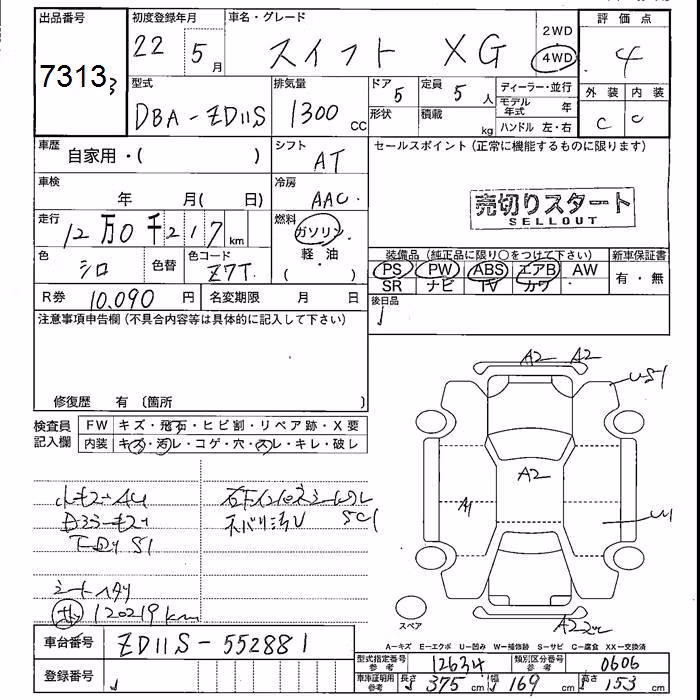 出品番号
7313
3
初度登録年月
22 5月
車名・グレード
スイフト XG
2WD
4WD
評価点
4
外装 内装
C C
型式
DBA-ZD11S
排気量
1300 cc
ドア 5
形状
定員 5 人
積載 kg
ディーラー・並行
モデル年式 年
ハンドル 左・右
車歴 自家用・( )
シフト AT
車検 年 月( 日)
冷房 AAC
走行 12万0千217 km
燃料 ガソリン
軽・油
( )
色 シロ
色替
色コード Z7T
R券 10,090 円
名変期限 月 日
セールスポイント(正常に機能するものに限ります)
売切りスタート
SELLOUT
装備品(純正品に限り○をつけて下さい)
新車保証書
PS PW ABS エアB AW
SR ナビ TV カワ
有・無
後日品
注意事項申告欄(不具合内容等は具体的に記入して下さい)
修復歴 有〔箇所 〕
検査員記入欄
FW キズ・飛石・ヒビ割・リペア跡・X要
内装 キズ・汚レ・コゲ・穴・スレ・キレ・破レ
A2 A2
US1
A2
A1
U1
A2
S1
SC1
120219km
スペア
A―キズ E―エクボ U―凹み W―補修跡 S―サビ C―腐食 XX―交換済
車台番号 ZD11S-552881
登録番号
型式指定番号 参考 12634
類別区分番号 参考 0606
車庫証明用 参考 長さ 375 cm 幅 169 cm 高さ 153 cm